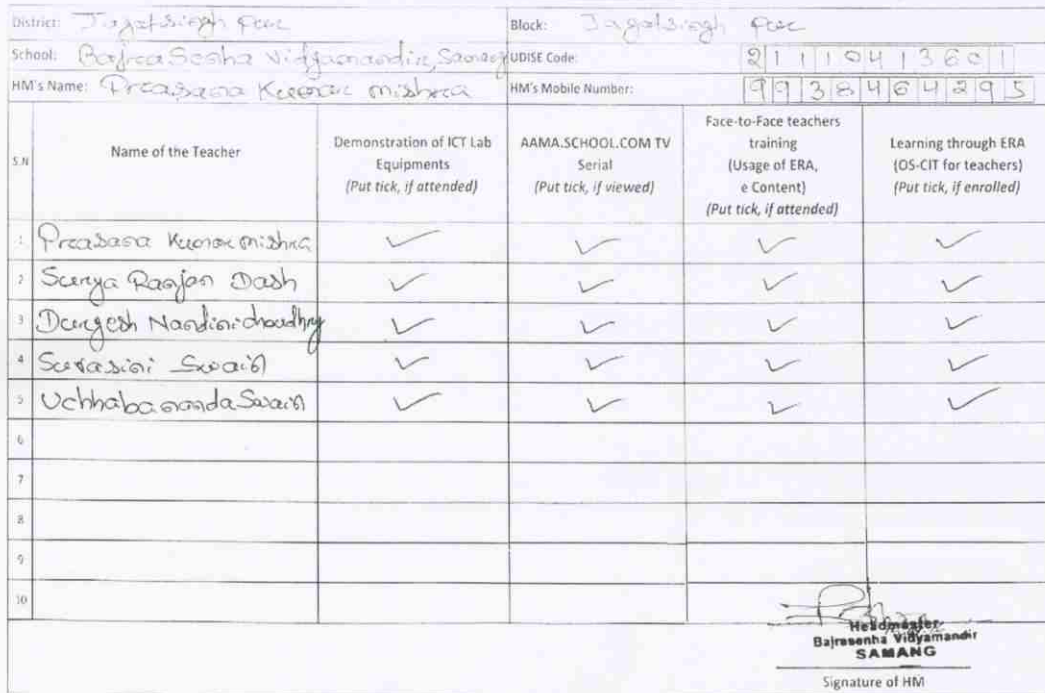 District: Jagatsingh pur Block: Jagatsingh pur
School: Bajra Senha Vidyamandir, Samang UDISE Code: 21110413601
HM's Name: Prasana Kumar Mishra HM's Mobile Number: 9938464295
S.N Name of the Teacher Demonstration of ICT Lab Equipments (Put tick, if attended) AAMA.SCHOOL.COM TV Serial (Put tick, if viewed) Face-to-Face teachers training (Usage of ERA, e Content) (Put tick, if attended) Learning through ERA (OS-CIT for teachers) (Put tick, if enrolled)
1 Prasana Kumar Mishra ✓ ✓ ✓ ✓
2 Surya Ranjan Dash ✓ ✓ ✓ ✓
3 Durgesh Nandini choudhry ✓ ✓ ✓ ✓
4 Suvasini Swain ✓ ✓ ✓ ✓
5 Uchhabananda Swain ✓ ✓ ✓ ✓
6
7
8
9
10
Headmaster
Bajrasenha Vidyamandir
SAMANG
Signature of HM